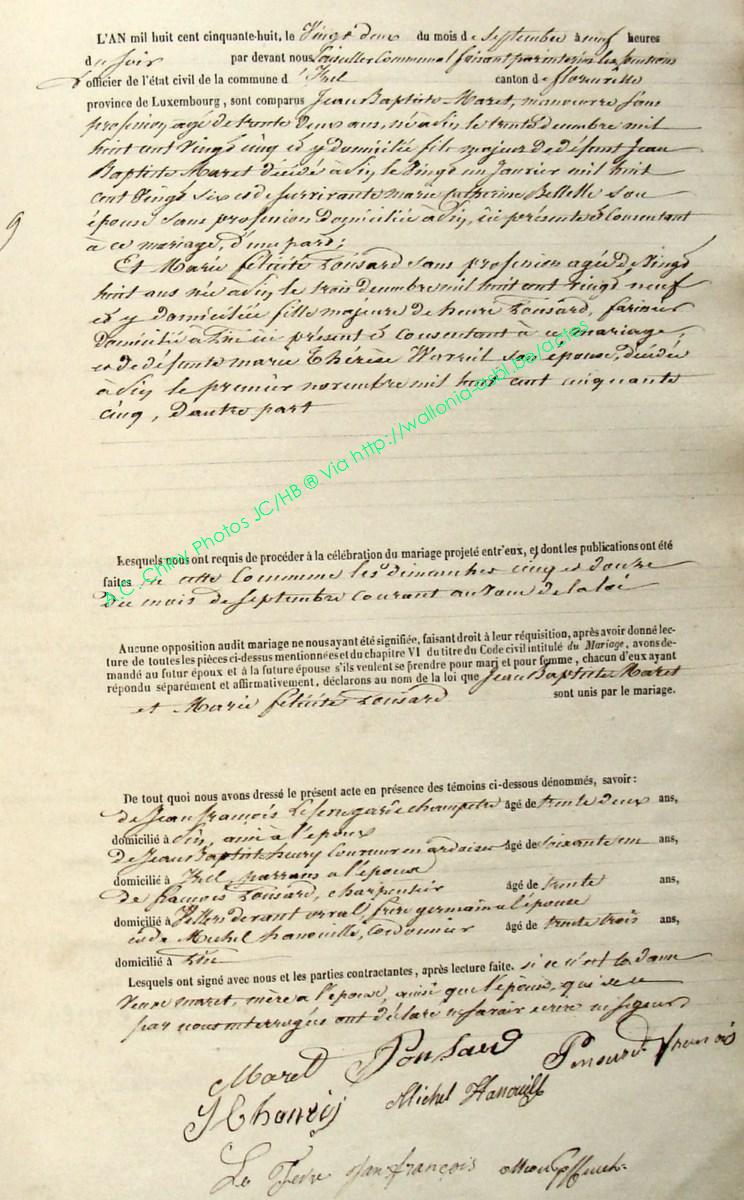 L'AN mil huit cent cinquante-huit, le Vingt deux du mois de Septembre à neuf heures
du soir par devant nous Conseiller Communal faisant par interim les fonctions
officier de l'état civil de la commune d' Izel canton de florenville
province de Luxembourg, sont comparus Jean Baptiste Maret, manoeuvre sans
profession, agé de trente deux ans, né à le trente décembre mil
huit cent vingt cinq et y domicilié fils majeur de défunt Jean
Baptiste Maret décédé à le vingt un Janvier mil huit
cent vingt six et de survivante marie catherine Bellette son
épouse sans profession domiciliée à ici présente et Consentant
à ce mariage, d'une part;
Et Marie félicité Ponsard sans profession agée de vingt
huit ans née à le trois décembre mil huit cent vingt neuf
et y domiciliée fille majeure de henri Ponsard,
domicilié à ici présent et consentant à ce mariage,
et de défunte marie Thérèse son épouse, décédée
à le premier novembre mil huit cent cinquante
cinq, d'autre part
9
A.C. Chiny Photos JC/HB ® Via http://wallonia-asbl.be/actes
Lesquels nous ont requis de procéder à la célébration du mariage projeté entr'eux, et dont les publications ont été
faites en cette Commune les dimanches cinq et douze
du mois de septembre courant au vœu de la loi
Aucune opposition audit mariage ne nous ayant été signifiée, faisant droit à leur réquisition, après avoir donné lec-
ture de toutes les pièces ci-dessus mentionnées et du chapitre VI du titre du Code civil intitulé du Mariage, avons de-
mandé au futur époux et à la future épouse s'ils veulent se prendre pour mari et pour femme, chacun d'eux ayant
répondu séparément et affirmativement, déclarons au nom de la loi que Jean Baptiste Maret
et Marie félicité Ponsard sont unis par le mariage.
De tout quoi nous avons dressé le présent acte en présence des témoins ci-dessous dénommés, savoir:
de Jean françois Lefevre garde champetre âgé de trente deux ans,
domicilié à ami à l'époux
de Jean Baptiste henry Couvreur en ardoises âgé de soixante un ans,
domicilié à Izel, parrain a l'époux
de françois Ponsard, charpentier âgé de trente ans,
domicilié à Villers devant orval frère germain a l'épouse
et de Michel hanouille, Cordonnier âgé de trente trois ans,
domicilié à
Lesquels ont signé avec nous et les parties contractantes, après lecture faite. si ce n'est la dame
veuve maret, mère a l'époux, ainsi que l'épouse, qui de ce
par nous interrogées ont déclaré ne savoir écrire ni signer
Maret Ponsard Ponsard François
J B henry Michel Hanouille
Le Fevre Jan françois